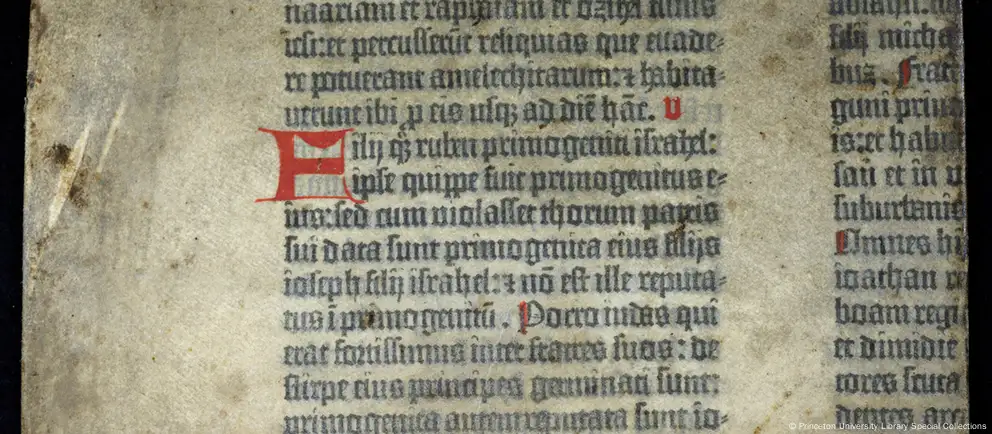 naariam et raphaiam et
iesi: et percusserūt reliquias que euade-
re potuerant amelechitarum: ⁊ habita-
uerunt ibi ꝓ eis usqꝫ ad diē hāc. V
Filij qꝫ̄ ruben primogeniti israhel:
ipse quippe fuit primogenitus e-
ius: sed cum violasset thorum patris
sui data sunt primogenita eius filijs
ioseph filij israhel: ⁊ nō est ille reputa-
tus ī primogenitū. Porro iudas qui
erat fortissimus inter fratres suos: de
stirpe eius principes germinati sunt:
primogenita autem reputata sunt io-
filij micha
buz. Frat
guni prin
is: et habi
san et in
suburbanis
Omnes hi
ioathan
boam regi
et dimidie
tores scuta
dentes arc
© Princeton University Library Special Collections